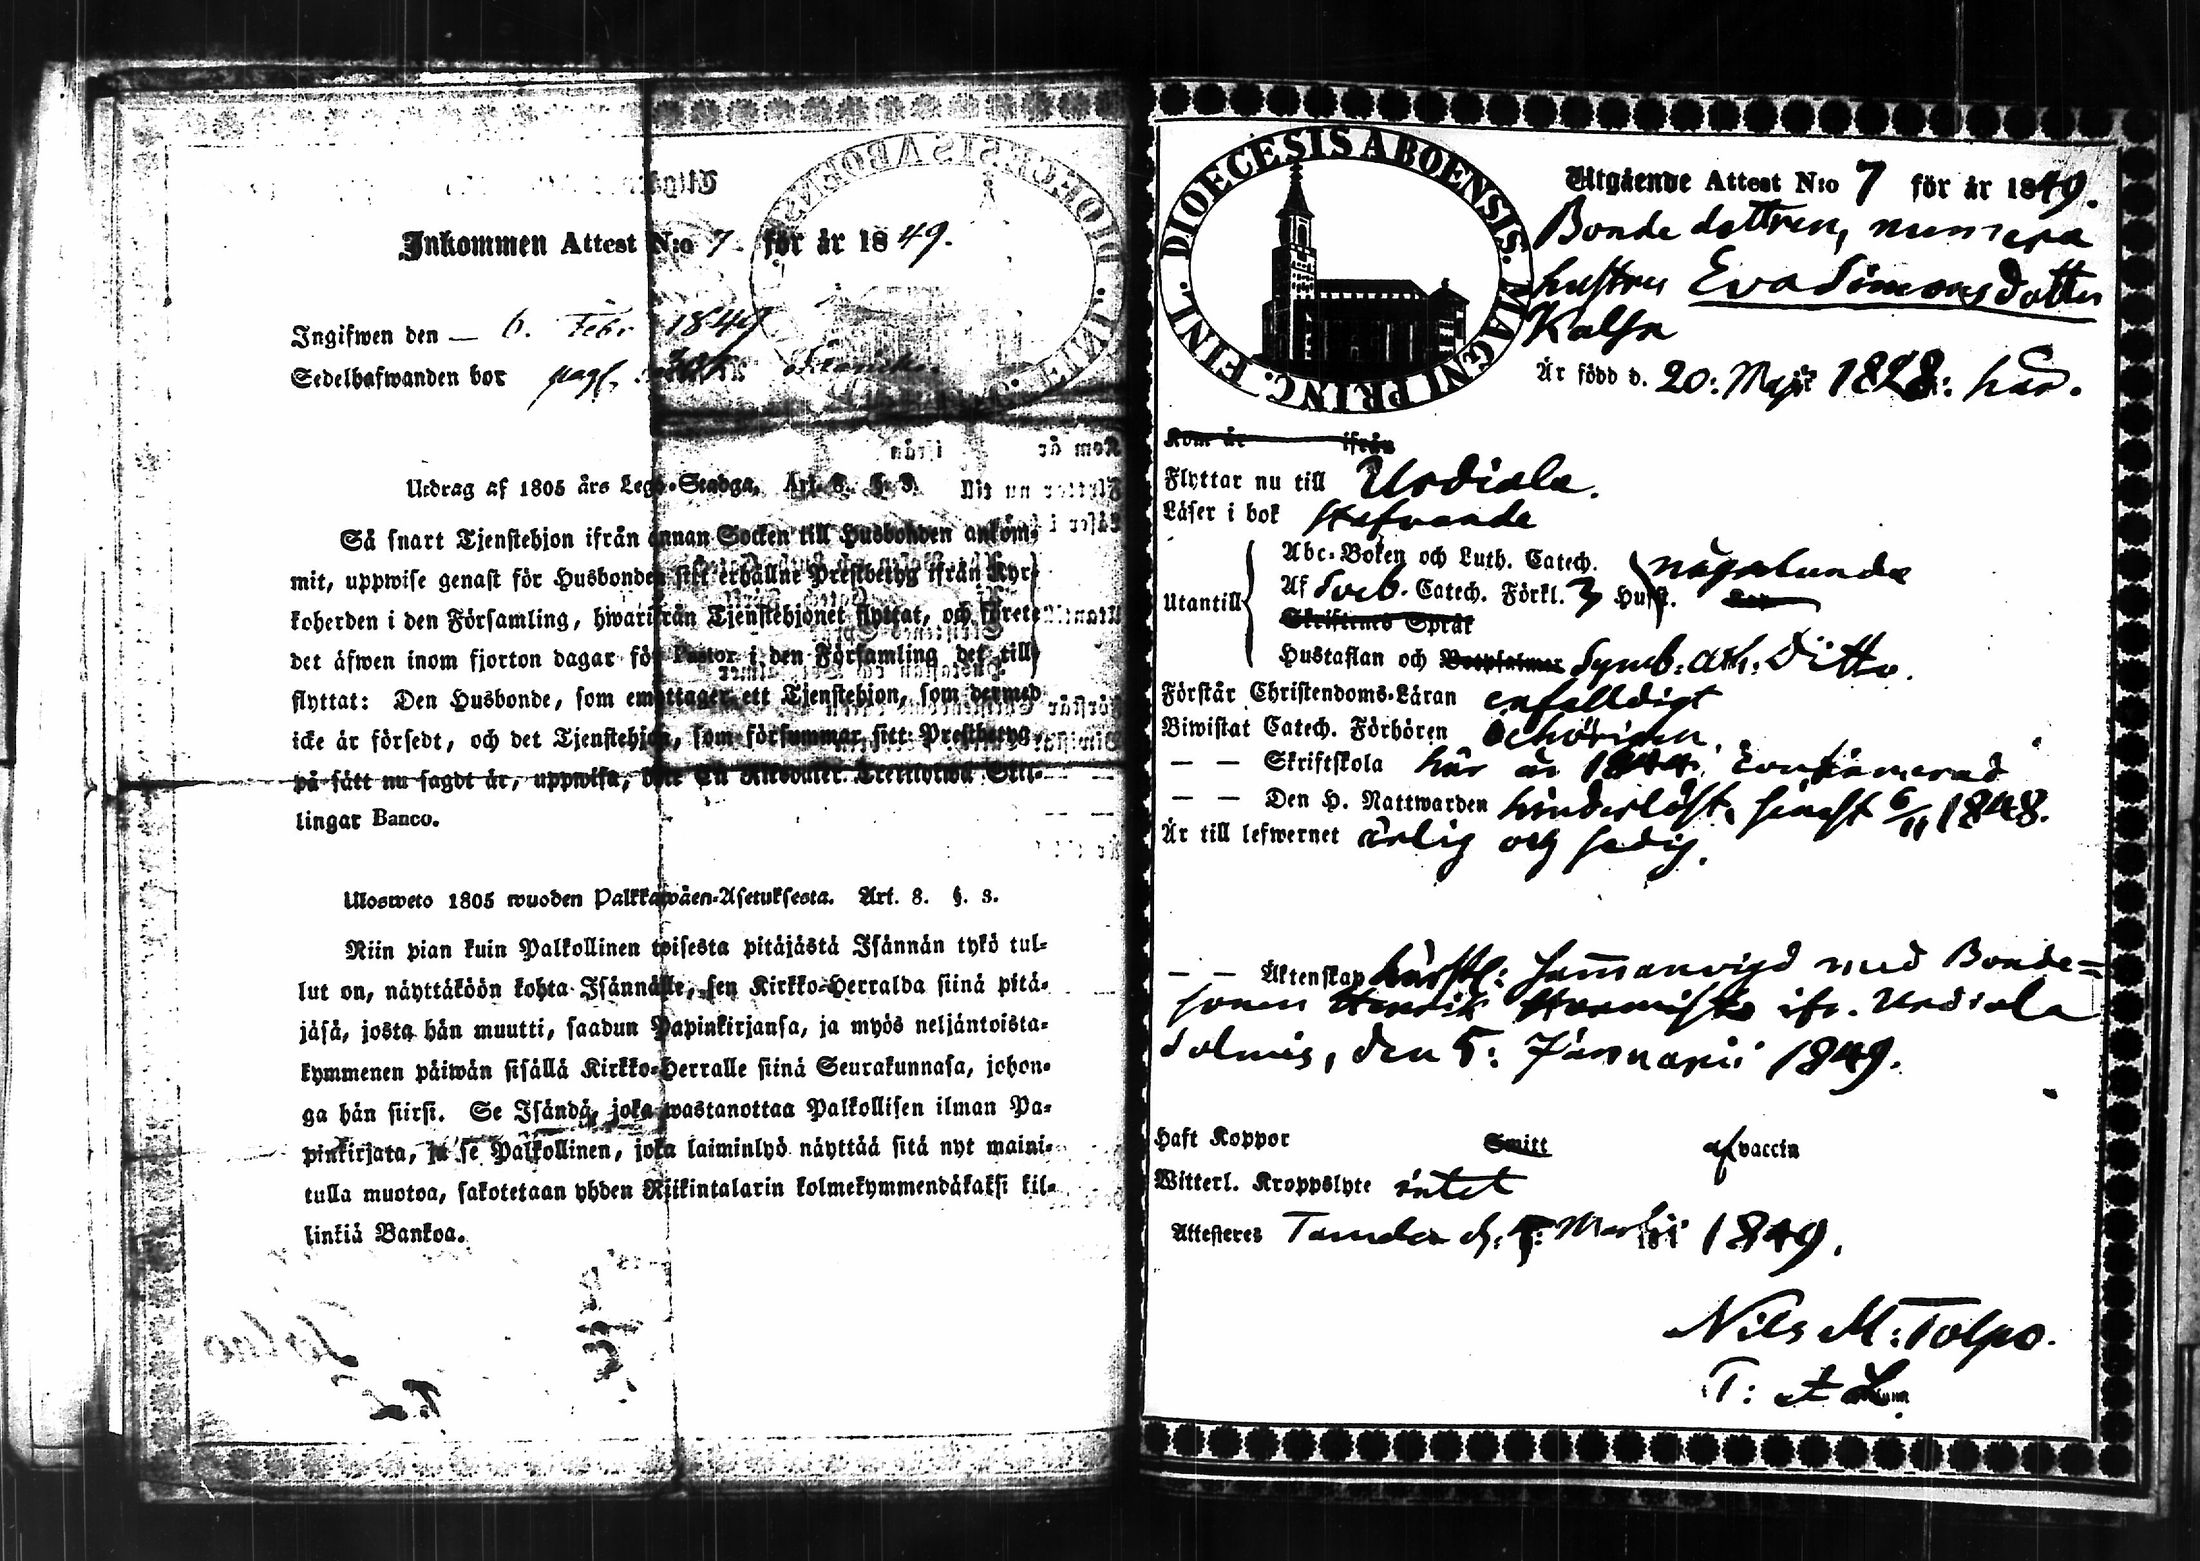 Inkommen Attest N:o 7 för år 1849.
Ingifwen den — 6. Febr 1849
Sedelhafwanden bor
Utdrag af 1805 års Lego-Stadga, Art. 8. §. 3.
Så snart Tjenstehjon ifrån annan Socken till Husbonden ankom-
mit, uppwise genast för Husbonden sitt erhållne Prestbetyg ifrån Kyr-
koherden i den Församling, hwarifrån Tjenstehjonet flyttat, och förete
det äfwen inom fjorton dagar för Pastor i den Församling det till-
flyttat: Den Husbonde, som emottager ett Tjenstehjon, som dermed
icke är försedt, och det Tjenstehjon, som försummar sitt Prestbetyg,
på sätt nu sagdt är, uppwisa, böte En Riksdaler Trettiotwå Skil-
lingar Banco.
Ulosweto 1805 wuoden Palkkawäen-Asetuksesta. Art. 8. §. 3.
Niin pian kuin Palkollinen toisesta pitäjästä Isännän tykö tul-
lut on, näyttäköön kohta Isännälle, sen Kirkko-Herralda siinä pitä-
jäsä, josta hän muutti, saadun Papinkirjansa, ja myös neljäntoista-
kymmenen päiwän sisällä Kirkko-Herralle siinä Seurakunnasa, johon-
ga hän siirsi. Se Isändä, joka wastanottaa Palkollisen ilman Pa-
pinkirjata, ja se Palkollinen, joka laiminlyö näyttää sitä nyt maini-
tulla muotoa, sakotetaan yhden Riikintalarin kolmekymmendäkaksi kil-
linkiä Bankoa.
DIOECESIS ABOENSIS. MAGNI PRINC. FINL.
Utgående Attest N:o 7 för år 1849.
Bonde dottren, numera
hustru Eva Simonsdotter
Kalha
Är född d. 20: Maji 1828: här.
Kom år ifrån
Flyttar nu till Urdiala.
Läser i bok stafvande
Abc-Boken och Luth. Catech. någorlunda
Utantill Af Sveb. Catech. Förkl. 3 Hufst.
Skriftenes Språk
Hustaflan och Botpsalmer Symb: Ath: Ditto.
Förstår Christendoms-Läran enfaldigt
Biwistat Catech. Förhören behörigen.
— — Skriftskola här år 1844,
— — Den H. Nattwarden hinderlöst, senast 6/11 1848.
Är till lefwernet ärlig och sedig.
— — Äktenskap härst: sammanvigd med Bonde=
sonen Henrik ifr. Urdiala
Solmis, den 5: Januarii 1849.
Haft Koppor Smitt af vaccin
Witterl. Kroppslyte intet
Attesteres d. Martii 1849.
Nils M: Tolpo.
T: